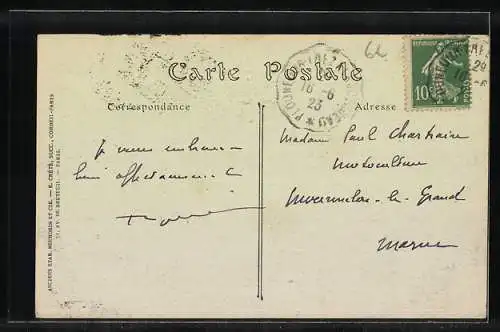 62
Carte Postale
Correspondance
Adresse
RÉPUBLIQUE FRANÇAISE
10
POSTES
16 - 6
23
Je vous embrasse
bien affectueusement
Madame Paul Chartraire
Motoculture
Mourmelon-le-Grand
Marne
ANCIENS ETAB. NEURDEIN ET CIE. — E. CRÉTÉ, SUCC., CORBEIL-PARIS
52, AV. DE BRETEUIL. — PARIS.